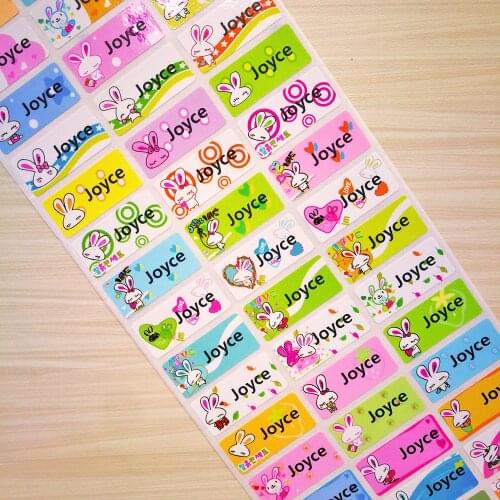 Joyce
Joyce
Joyce
Joyce
Joyce
Joyce
Joyce
Joyce
Joyce
Joyce
Joyce
Joyce
Joyce
Joyce
Joyce
Joyce
Joyce
Joyce
Joyce
Joyce
Joyce
Joyce
Joyce
Joyce
Joyce
Joyce
Joyce
Joyce
Joyce
Joyce
Joyce
Joyce
Joyce
Joyce
Joyce
Joyce